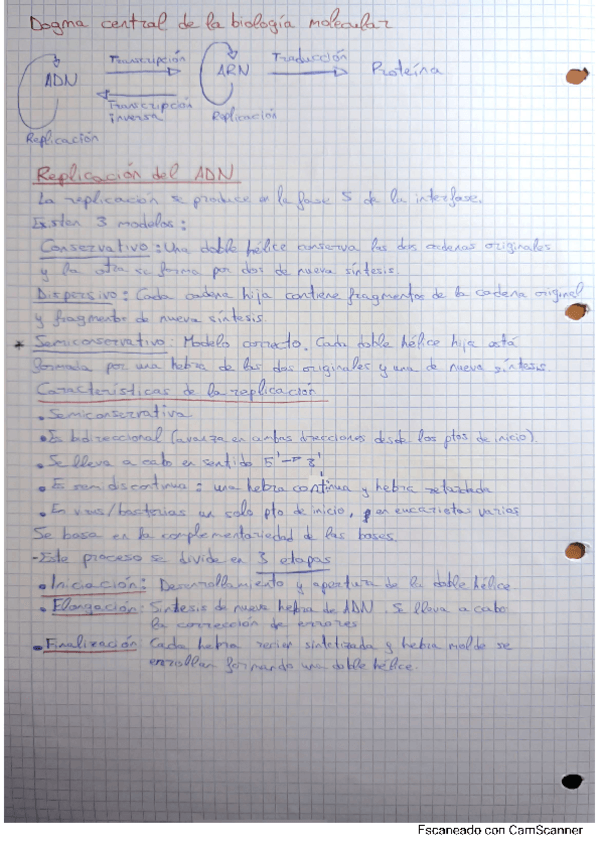 Dogma central de la biología molecular
ADN Transcripción ARN Traducción Proteína
Transcripción
inversa
Replicación
Replicación
Replicación del ADN
La replicación se produce en la fase S de la interfase.
Existen 3 modelos:
Conservativo: Una doble hélice conserva las dos cadenas originales
y la otra se forma por dos de nueva síntesis.
Dispersivo: Cada cadena hija contiene fragmentos de la cadena original
y fragmentos de nueva síntesis.
* Semiconservativo: Modelo correcto. Cada doble hélice hija está
formada por una hebra de las dos originales y una de nueva síntesis.
Características de la replicación
• Semiconservativa
• Es bidireccional (avanza en ambas direcciones desde los ptos de inicio).
• Se lleva a cabo en sentido 5'→3'
• Es semidiscontinua: una hebra continua y hebra retardada
• En virus/bacterias un solo pto de inicio, en eucariotas varios
Se basa en la complementariedad de las bases.
-Este proceso se divide en 3 etapas
• Iniciación: Desenrollamiento y apertura de la doble hélice
• Elongación: Síntesis de nueva hebra de ADN. Se lleva a cabo
la corrección de errores
• Finalización Cada hebra recien sintetizada y hebra molde se
enrollan formando una doble hélice.
Escaneado con CamScanner